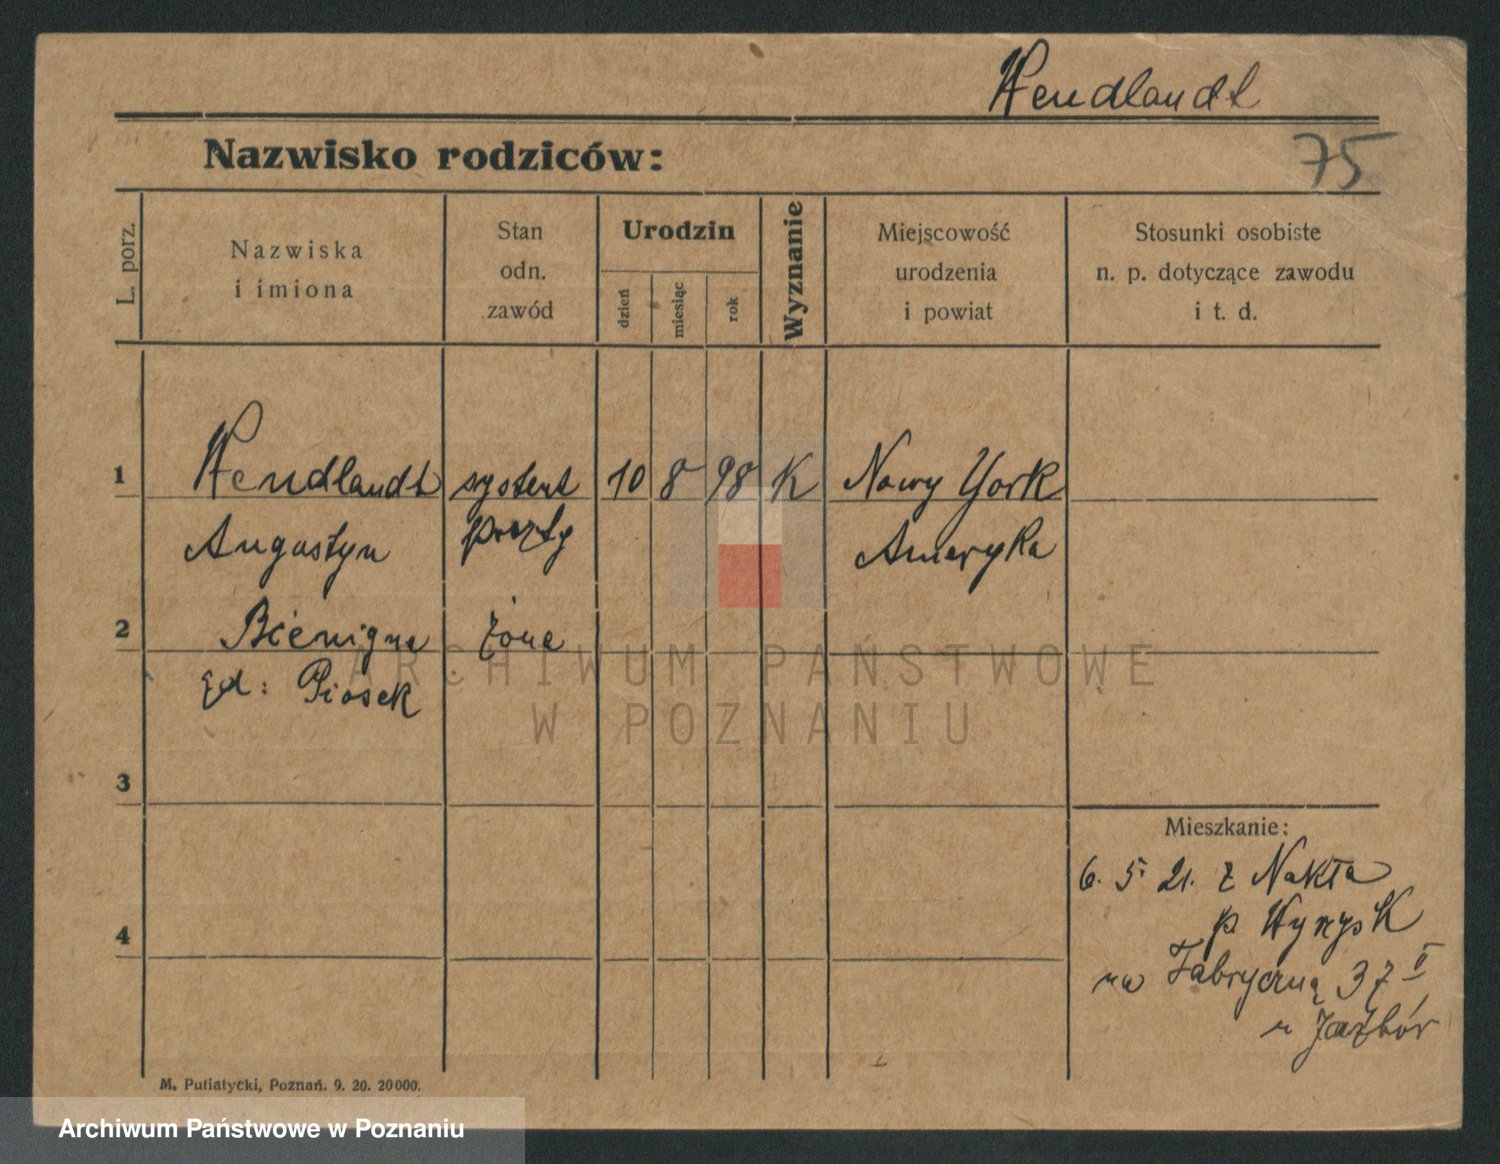 Wendlandt
75
Nazwisko rodziców:
L. porz.
Nazwiska
i imiona
Stan
odn.
zawód
Urodzin
dzień
miesiąc
rok
Wyznanie
Miejscowość
urodzenia
i powiat
Stosunki osobiste
n. p. dotyczące zawodu
i t. d.
1 Wendlandt systent 10 8 98 K Nowy York
Augustyn poczty Ameryka
2 Bienigna żona
Piosek
3
4
Mieszkanie:
6. 5. 21. z Nakła
p Wyrzysk
na Fabryczną 37 II
u
M. Putiatycki, Poznań. 9. 20. 20000.
ARCHIWUM PAŃSTWOWE
W POZNANIU
Archiwum Państwowe w Poznaniu